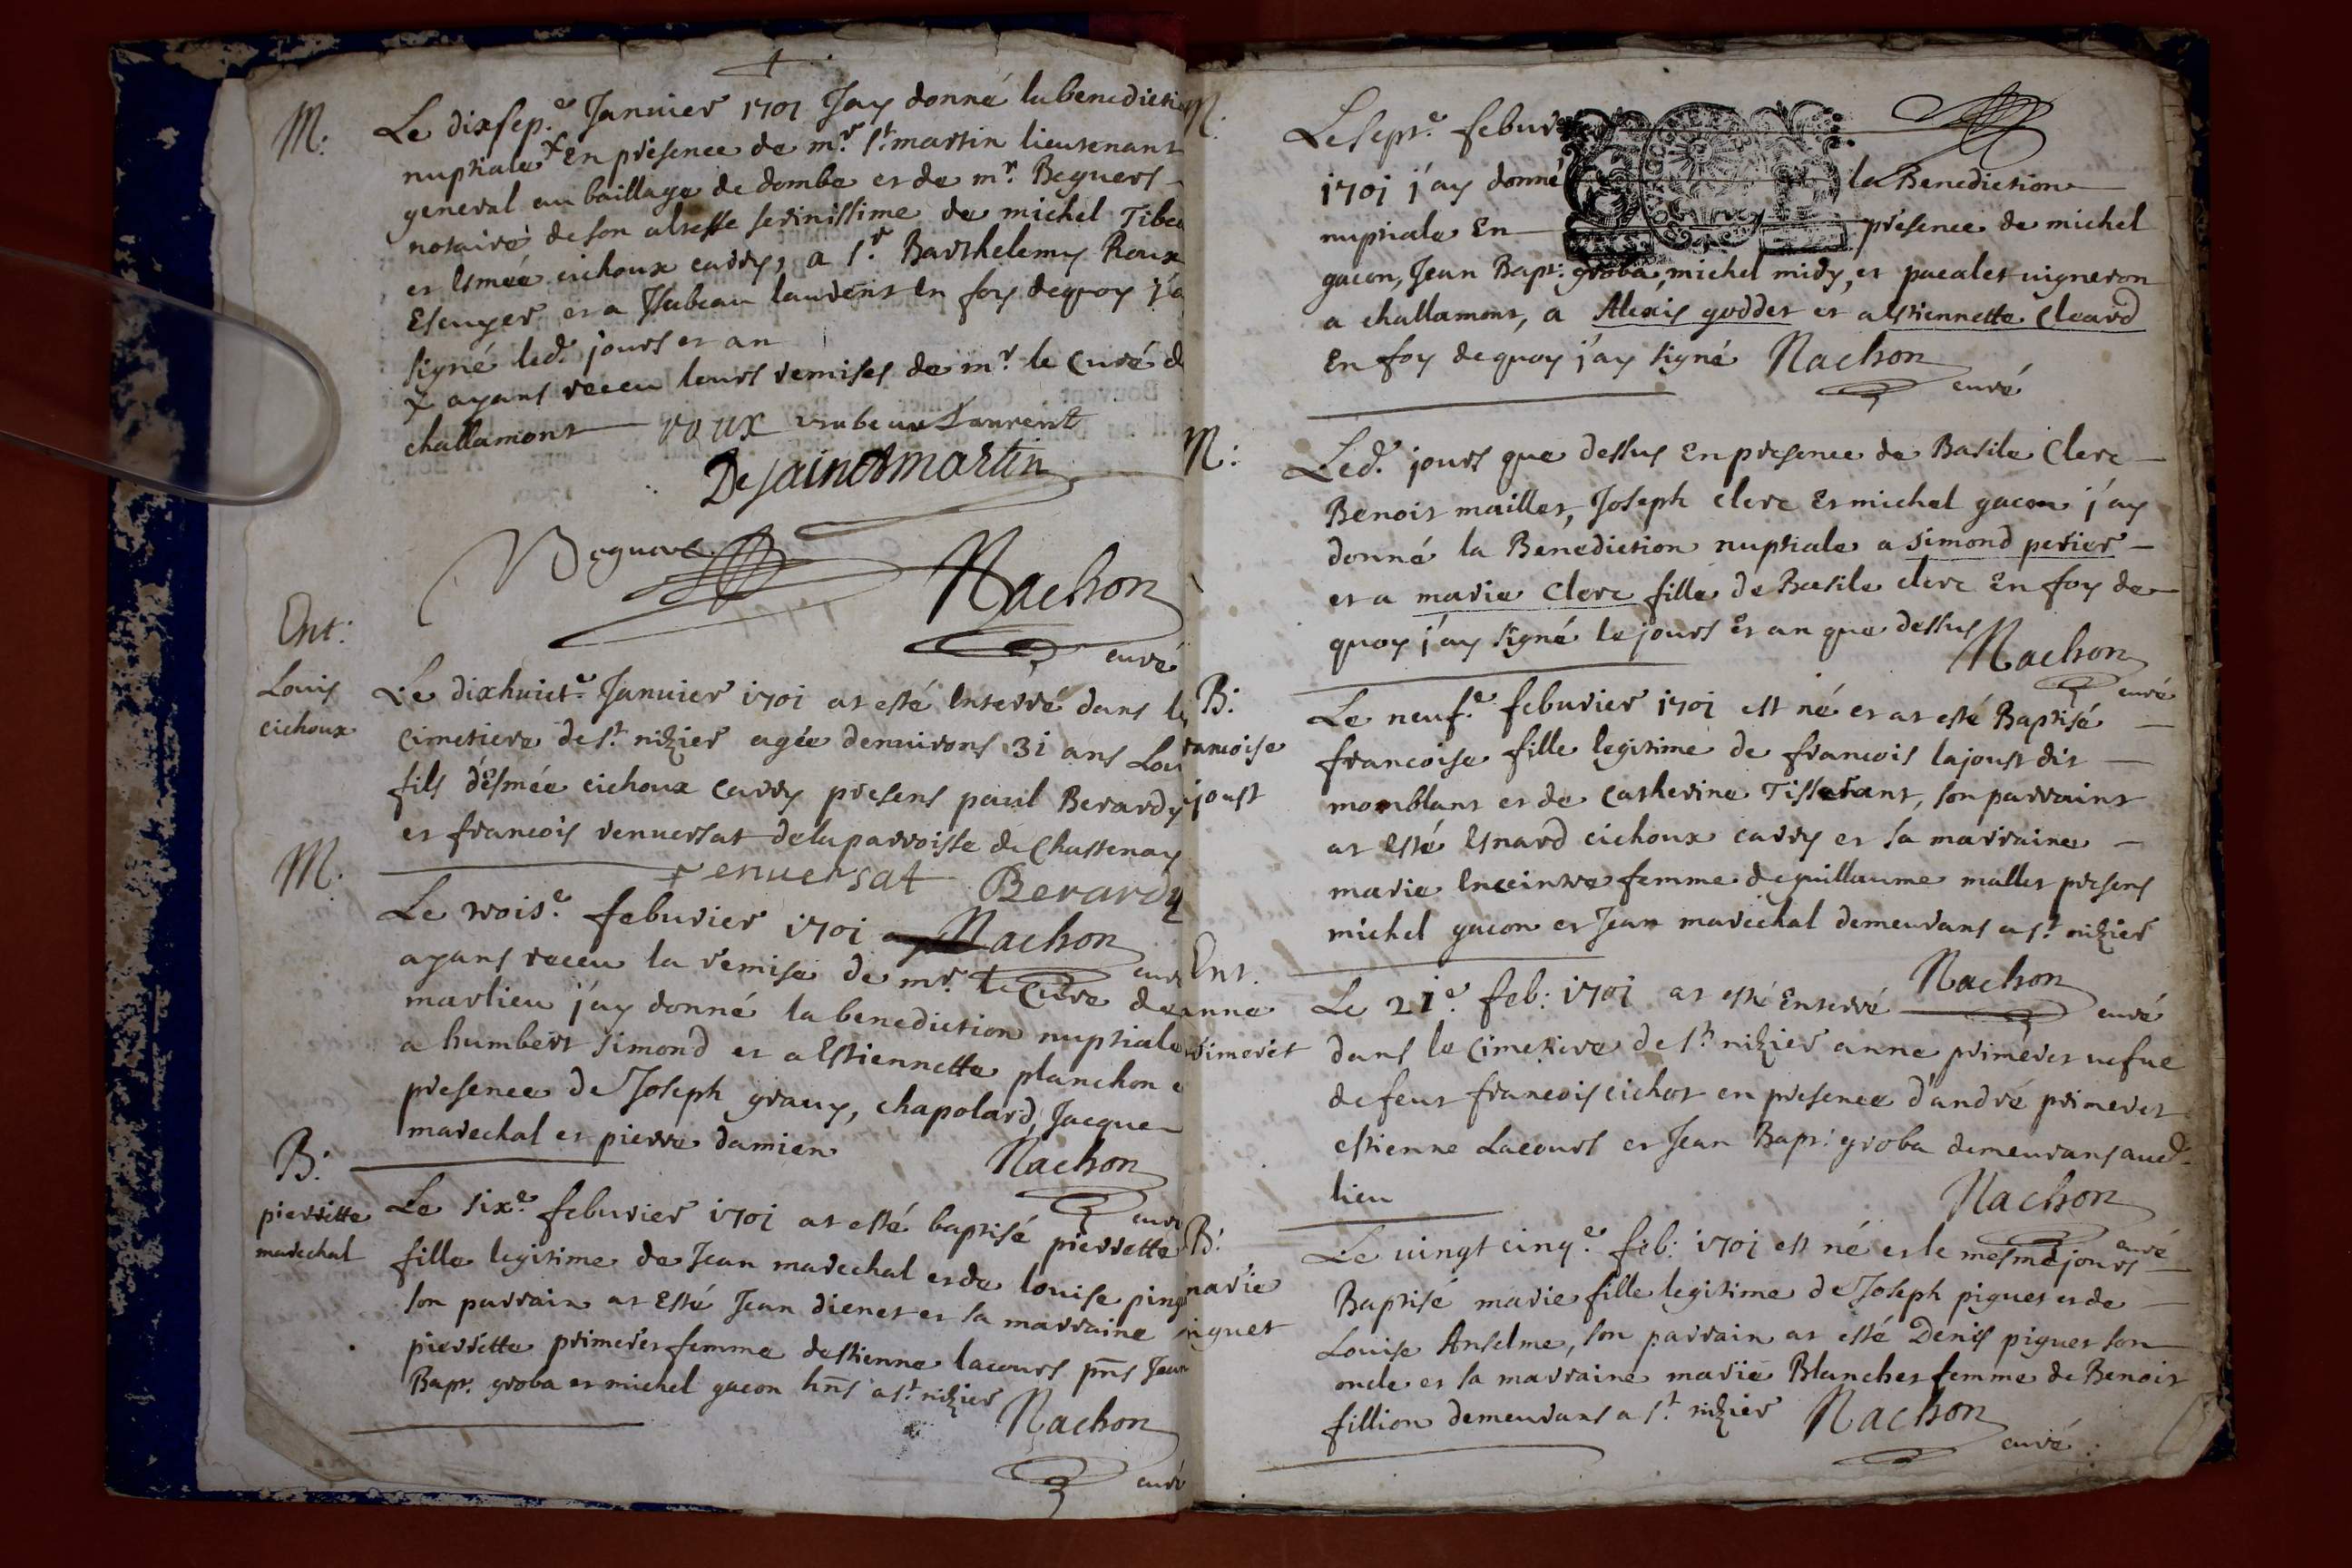 M.
Le dixsep.e Januier 1701 Jay donné la benedicti
nuptiale x En presence de mr. St. martin lieutenant
general au baillage de dombe et de mr. Beguers
notaire de son altesse serinissime de michel Tibe
et Esmée cichoux carry, a Sr. Barthelemy Roux
Escuyer et a Isabeau laurent En foy dequoy j'a
signé led. jours et an
x ayant receu leurs remises de mr. le Curé d
challamont roux isabeau Laurent
De sainct martin
Beguers
Nachon
curé
Ent:
Louis
cichoux
Le dixhuict.e Januier 1701 at esté Enterré dans le
Cimetiere de St. nizier agée denuirons 31 ans Lou
fils d'Esmée cichoux Carry presens paul Berardy
et francois renuersat dela parroisse de Chastenay
renuersat Berardy
M.
Le trois.e feburier 1701 Nachon
curé
ayant receu la remise de mr. le Curé de
marlieu j'ay donné la benediction nuptiale
a humbert simond et a Estiennette planchon e
presence de Joseph grauy, chapolard, Jacque
marechal et pierre damien
Nachon
curé
B:
pierrette
marechal
Le six.e feburier 1701 at esté baptisé pierrette
fille legitime de Jean marechal et de louise ping
son parrain at Esté Jean dienet et la marraine
pierrette primeret femme destienne lacours pns Jean
Bapt. groba et michel gacon hns a St. nizier
Nachon
curé
M.
Le sept.e febur
1701 j'ay donné la Benediction
nuptiale En presence de michel
gacon, Jean Bapt. groba, michel midy, et pacalet uigneron
a challamont, a Alexis goddet et a Estiennette Cleard
En foy dequoy j'ay signé Nachon
curé
M:
Led. jours que dessus En presence de Basile Clerc
Benoit maillet, Joseph clerc Et michel gacon j'ay
donné la Benediction nuptiale a simond perier
et a marie Clerc fille de Basile clerc En foy de
quoy j'ay signé le jours Et an que dessus
Nachon
curé
B:
rancoise
joust
Le neuf.e feburier 1701 est né et at esté Baptisé
francoise fille legitime de francois lajoust dit
momblant et de Catherine Tisserant, son parraint
at Esté Esnard cichoux carry et la marraine
marie Enceintre femme de guillaume mallet presens
michel gacon et Jean marechal demeurans a St. nizier
Nachon
curé
Ent.
anne
rimeret
Le 21.e feb: 1701 at esté Enterré
dans le Cimetiere de St. nizier anne primeret uefue
defeut francois cichot en presence d'andré primeret
estienne Lacours et Jean Bapt. groba demeurans aud.
lieu
Nachon
curé
B:
marie
iguet
Le uingt cinq.e feb: 1701 est né et le mesme jours
Baptisé marie fille legitime de Joseph piguet et de
Louise Anselme, son parrain at esté Denis piguet son
oncle et la marraine marie Blanchet femme de Benoit
fillion demeurans a St. nizier Nachon
curé